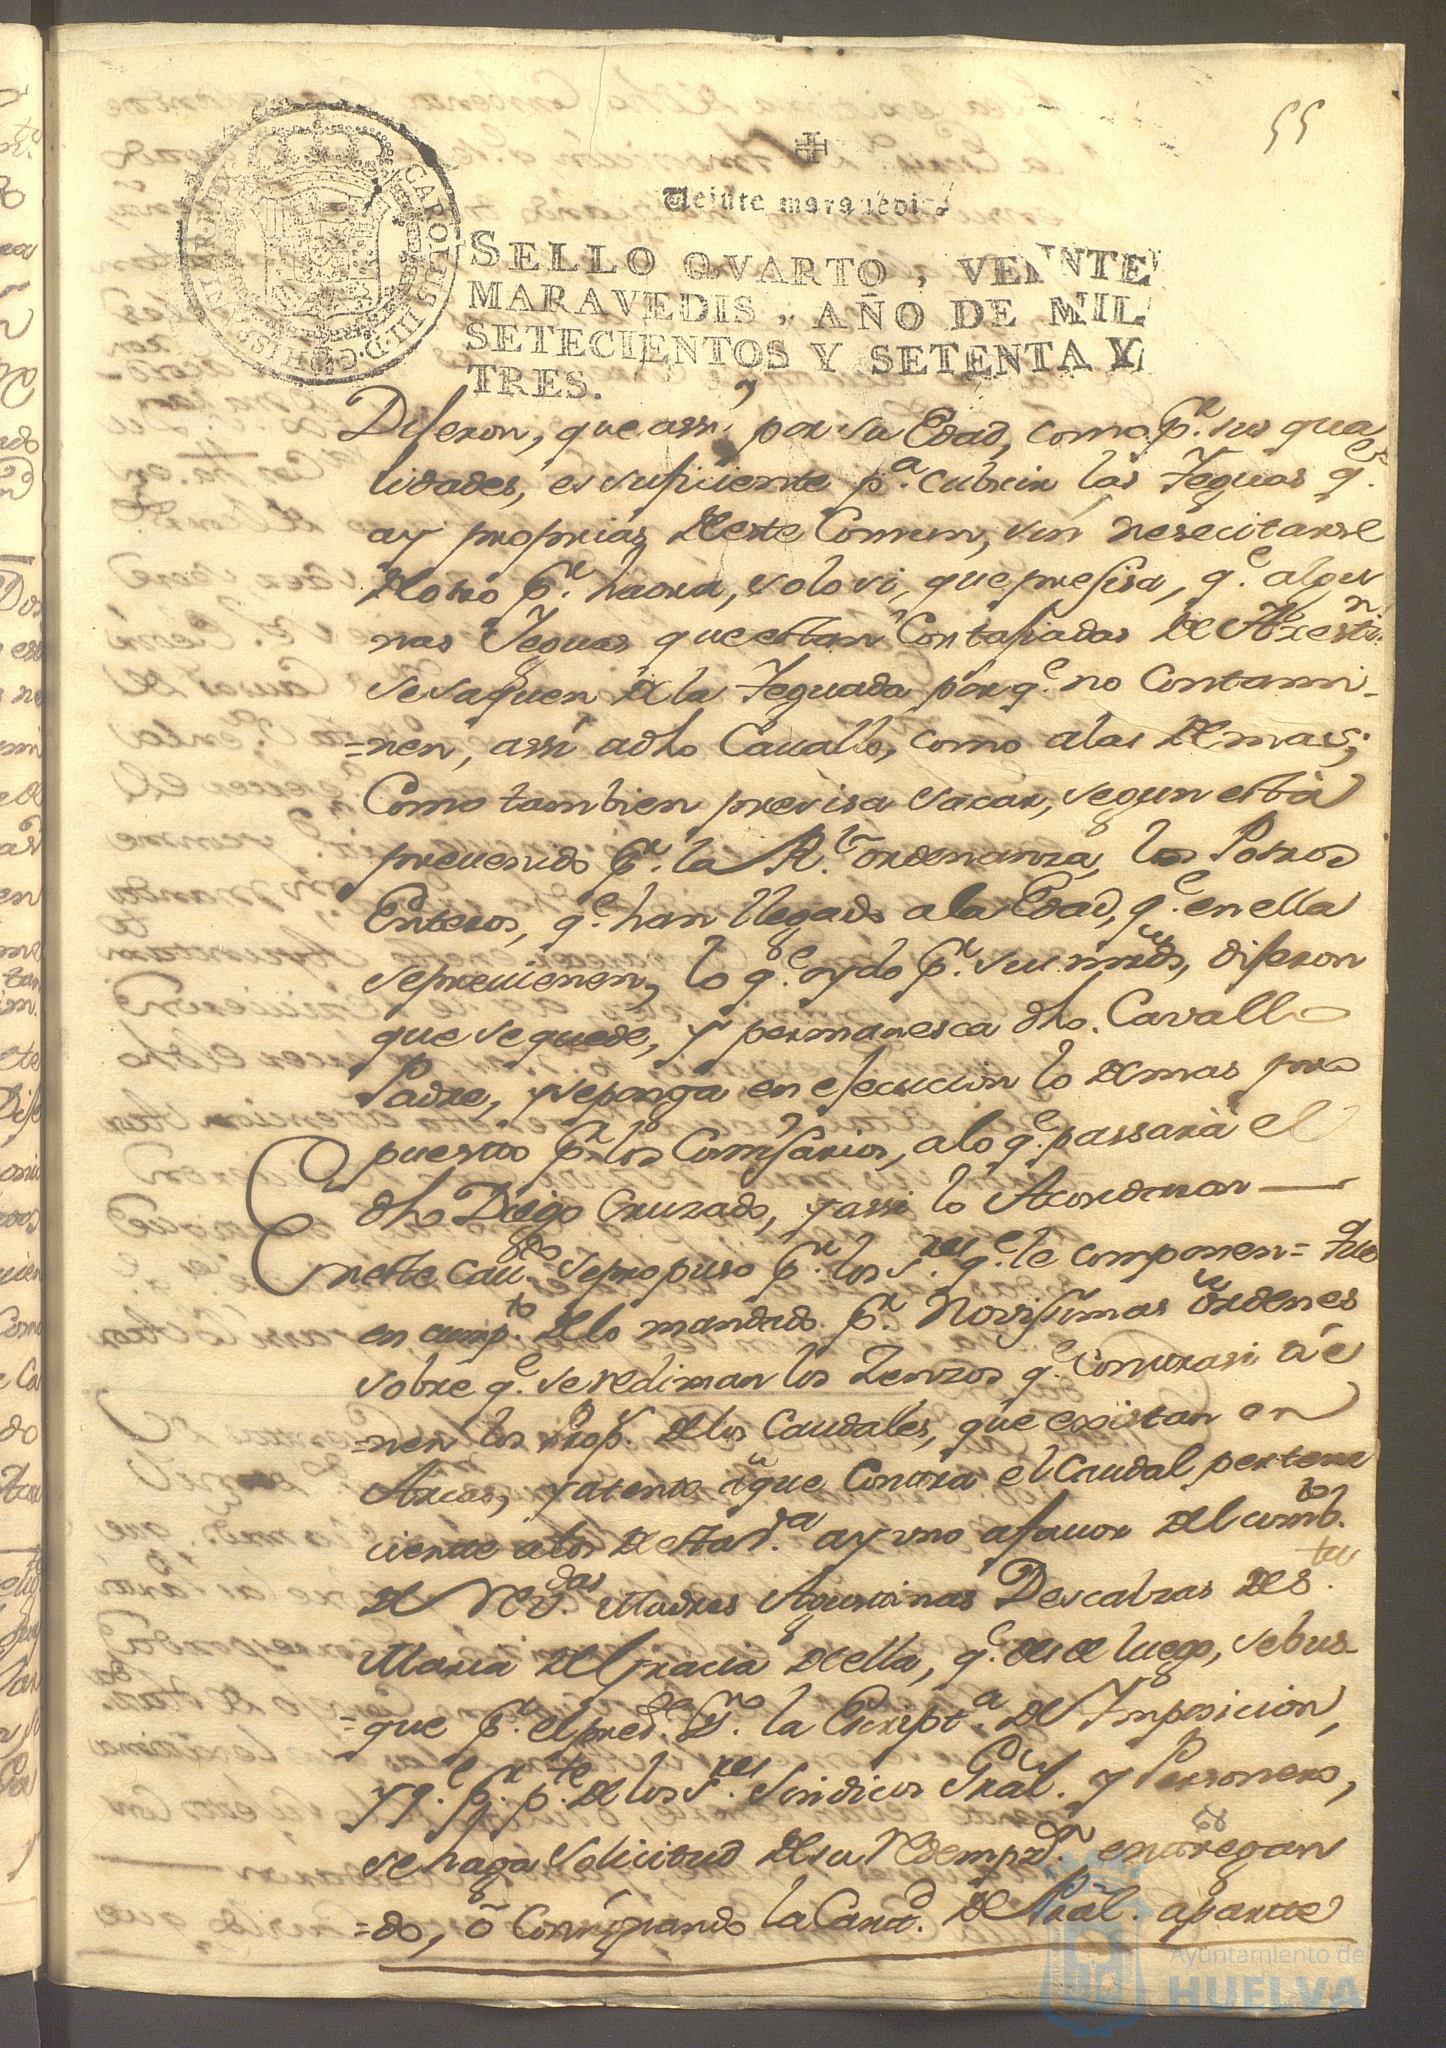 55
Veinte maravedis
SELLO QVARTO, VEINTE
MARAVEDIS, AÑO DE MIL
SETECIENTOS Y SETENTA Y
TRES.
CAROLUS III D G HISPANIAR
Diseron, que assi por su Edad, como pr. sus qua
lidades, es suficiente pa. cubrir las Yeguas qe.
ay proprias deste Comun, sin nesecitarse
de otro pr. haora, solo si, que presisa, qe. algu
nas Yeguas que estan Contajiadas de
se saquen de la Yeguada porqe. no Contami-
=nen, assi a dho Cauallo, como a las demas;
Como tambien presisa sacar, segun està
preuenido pr. la Rl. ordenanza, los Potros
Enteros, qe. han llegado a la Edad, qe. en ella
se preuienen, lo qe. oydo pr. sus mrds, diseron
que se quede, y permanesca dho. Cavallo
Padre, y se ponga en ejecucion lo demas pro
puesto pr. los Comisarios, a lo qe. passarà el
dho Diego Cruzado, y assi lo Acordaron
En este Caudo. se propuso pr. los Sres. qe. le componen = que
en cumpto. de lo mandado pr. Novissimas ordenes
sobre qe. se rediman los Zenzos qe. contra si tie
=nen los Prop. de los Caudales, que existan en
Arcas, y atento a que contra el Caudal pertene
ciente a los de esta Va. ay uno a fauor del combto.
de Revdas. Madres Agustinas Descalzas de Sta.
Maria de Gracia de ella, qe. desde luego, se bus-
=que pr. el presente la Escripta. de Imposicion,
y qe. pr. pte. de los Sres. Sindicos Gral. y Personero,
se haga solicitud de su redempn. entregan
=do, ò Consignando la Cantd. de Pral. aparte
Ayuntamiento de
HUELVA